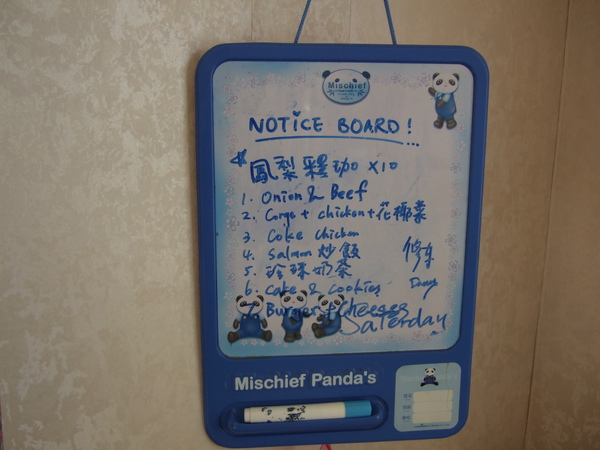 Mischief
NOTICE BOARD!
鳳梨 X10
1. Onion & Beef
2. + chicken + 花椰菜
3. Coke chicken
4. Salmon 炒飯
5. 珍珠奶茶
6. Cake & Cookies
7. Burger + Cheeses
Saterday
Mischief Panda's